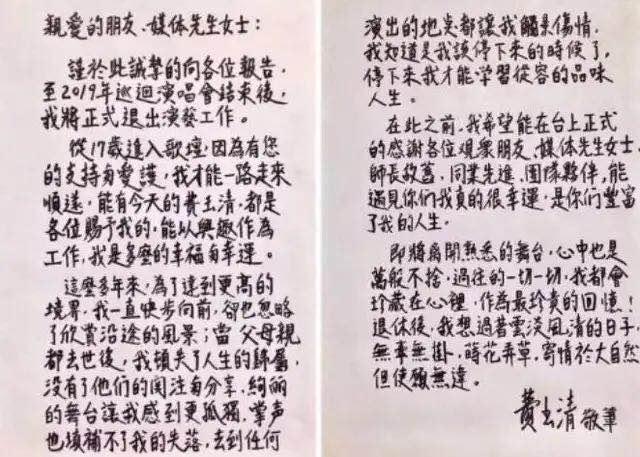 親愛的朋友、媒体先生女士:
謹於此誠摯的向各位報告,
至2019年巡迴演唱會結束後,
我將正式退出演藝工作。
從17歲進入歌壇,因為有您
的支持与愛護,我才能一路走來
順遂,能有今天的費玉清,都是
各位賜予我的,能以興趣作為
工作,我是多麼的幸福与幸運。
這麼多年來,為了達到更高的
境界,我一直快步向前,卻也忽略
了欣賞沿途的風景;當父母親
都去世後,我頓失了人生的歸屬,
沒有了他們的関注与分享,絢麗
的舞台讓我感到更孤獨,掌声
也填補不了我的失落,去到任何
演出的地点都讓我觸景傷情,
我知道是我該停下來的時候了,
停下來我才能学習從容的品味
人生。
在此之前,我希望能在台上正式
的感謝各位观眾朋友、媒体先生女士、
師長故舊,同業先進,团隊夥伴,能
遇見你们我真的很幸運,是你们豐富
了我的人生。
即將离開熟悉的舞台,心中也是
萬般不捨,過往的一切一切,我都會
珍藏在心裡,作為最珍貴的回憶!
退休後,我想過著雲淡風清的日子,
無牽無掛,蒔花弄草,寄情於大自然
但使願無違。
費玉清 敬筆